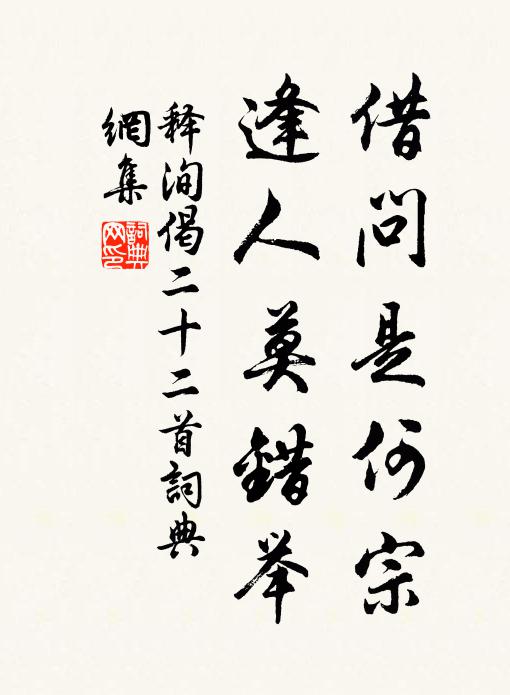 借问是何宗
逢人莫错举
释洵偈二十二首詞典
網集
詞典
网印